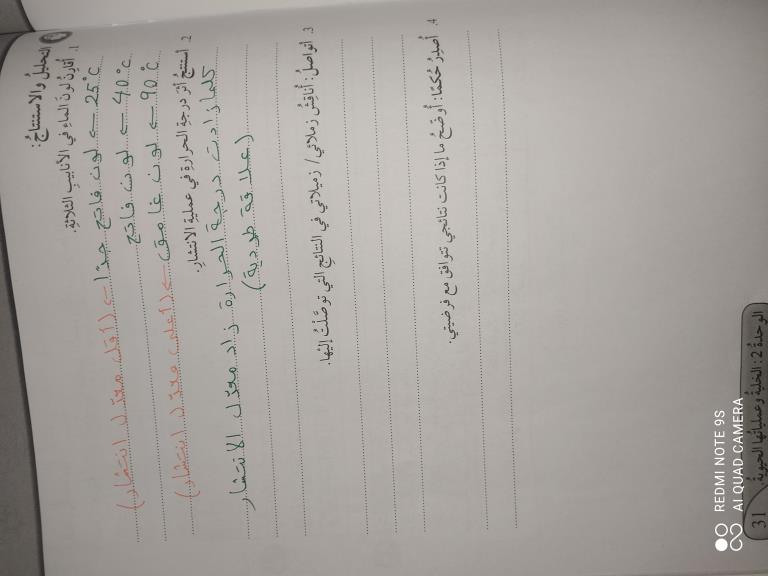 التحليلُ والاستنتاجُ:
1. أُقارنُ لونَ الماءِ في الأنابيبِ الثلاثةِ.
25°c ← لون فاتح جدًا ← (أقل معدّل انتشار)
40°c ← لون فاتح
90°c ← لون غامق ← (أعلى معدّل انتشار)
2. أستنتجُ أثرَ درجةِ الحرارةِ في عمليةِ الانتشارِ.
كلما زادت درجة الحرارة زاد معدل الانتشار
(علاقة طردية)
3. أتواصلُ: أُناقِشُ زملائي/ زميلاتي في النتائجِ التي توصَّلْتُ إليْها.
4. أُصدِرُ حُكمًا: أُوضِّحُ ما إذا كانت نتائجي تتوافق مع فرضيتي.
الوحدةُ 2: الخليةُ وعملياتُها الحيويةُ.
31
REDMI NOTE 9S
AI QUAD CAMERA